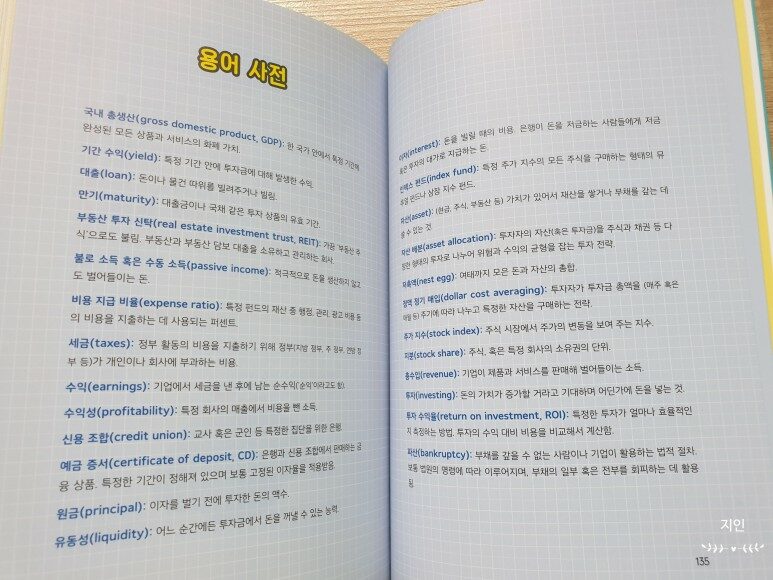 용어 사전
국내 총생산(gross domestic product, GDP): 한 국가 안에서 특정 기간에
완성된 모든 상품과 서비스의 화폐 가치.
기간 수익(yield): 특정 기간 안에 투자금에 대해 발생한 수익.
대출(loan): 돈이나 물건 따위를 빌려주거나 빌림.
만기(maturity): 대출금이나 국채 같은 투자 상품의 유효 기간.
부동산 투자 신탁(real estate investment trust, REIT): 가끔 '부동산 주
식'으로도 불림. 부동산과 부동산 담보 대출을 소유하고 관리하는 회사.
불로 소득 혹은 수동 소득(passive income): 적극적으로 돈을 생산하지 않고
도 벌어들이는 돈.
비용 지급 비율(expense ratio): 특정 펀드의 재산 중 행정, 관리, 광고 비용 등
의 비용을 지출하는 데 사용되는 퍼센트.
세금(taxes): 정부 활동의 비용을 지출하기 위해 정부(지방 정부, 주 정부, 연방 정
부 등)가 개인이나 회사에 부과하는 비용.
수익(earnings): 기업에서 세금을 낸 후에 남는 순수익('순익'이라고도 함).
수익성(profitability): 특정 회사의 매출에서 비용을 뺀 소득.
신용 조합(credit union): 교사 혹은 군인 등 특정한 집단을 위한 은행.
예금 증서(certificate of deposit, CD): 은행과 신용 조합에서 판매하는 금
융 상품. 특정한 기간이 정해져 있으며 보통 고정된 이자율을 적용받음.
원금(principal): 이자를 벌기 전에 투자한 돈의 액수.
유동성(liquidity): 어느 순간에든 투자금에서 돈을 꺼낼 수 있는 능력.
이자(interest): 돈을 빌릴 때의 비용. 은행이 돈을 저금하는 사람들에게 저금
혹은 투자의 대가로 지급하는 돈.
인덱스 펀드(index fund): 특정 주가 지수의 모든 주식을 구매하는 형태의 뮤
추얼 펀드나 상장 지수 펀드.
자산(asset): (현금, 주식, 부동산 등) 가치가 있어서 재산을 쌓거나 부채를 갚는 데
쓸 수 있는 것.
자산 배분(asset allocation): 투자자의 자산(혹은 투자금)을 주식과 채권 등 다
양한 형태의 투자로 나누어 위험과 수익의 균형을 잡는 투자 전략.
저축액(nest egg): 여태까지 모은 돈과 자산의 총합.
정액 정기 매입(dollar cost averaging): 투자자가 투자금 총액을 (매주 혹은
매월 등) 주기에 따라 나누고 특정한 자산을 구매하는 전략.
주가 지수(stock index): 주식 시장에서 주가의 변동을 보여 주는 지수.
지분(stock share): 주식, 혹은 특정 회사의 소유권의 단위.
총수입(revenue): 기업이 제품과 서비스를 판매해 벌어들이는 소득.
투자(investing): 돈의 가치가 증가할 거라고 기대하며 어딘가에 돈을 넣는 것.
투자 수익율(return on investment, ROI): 특정한 투자가 얼마나 효율적인
지 측정하는 방법. 투자의 수익 대비 비용을 비교해서 계산함.
파산(bankruptcy): 부채를 갚을 수 없는 사람이나 기업이 활용하는 법적 절차.
보통 법원의 명령에 따라 이루어지며, 부채의 일부 혹은 전부를 회피하는 데 활용
됨.
지인
135